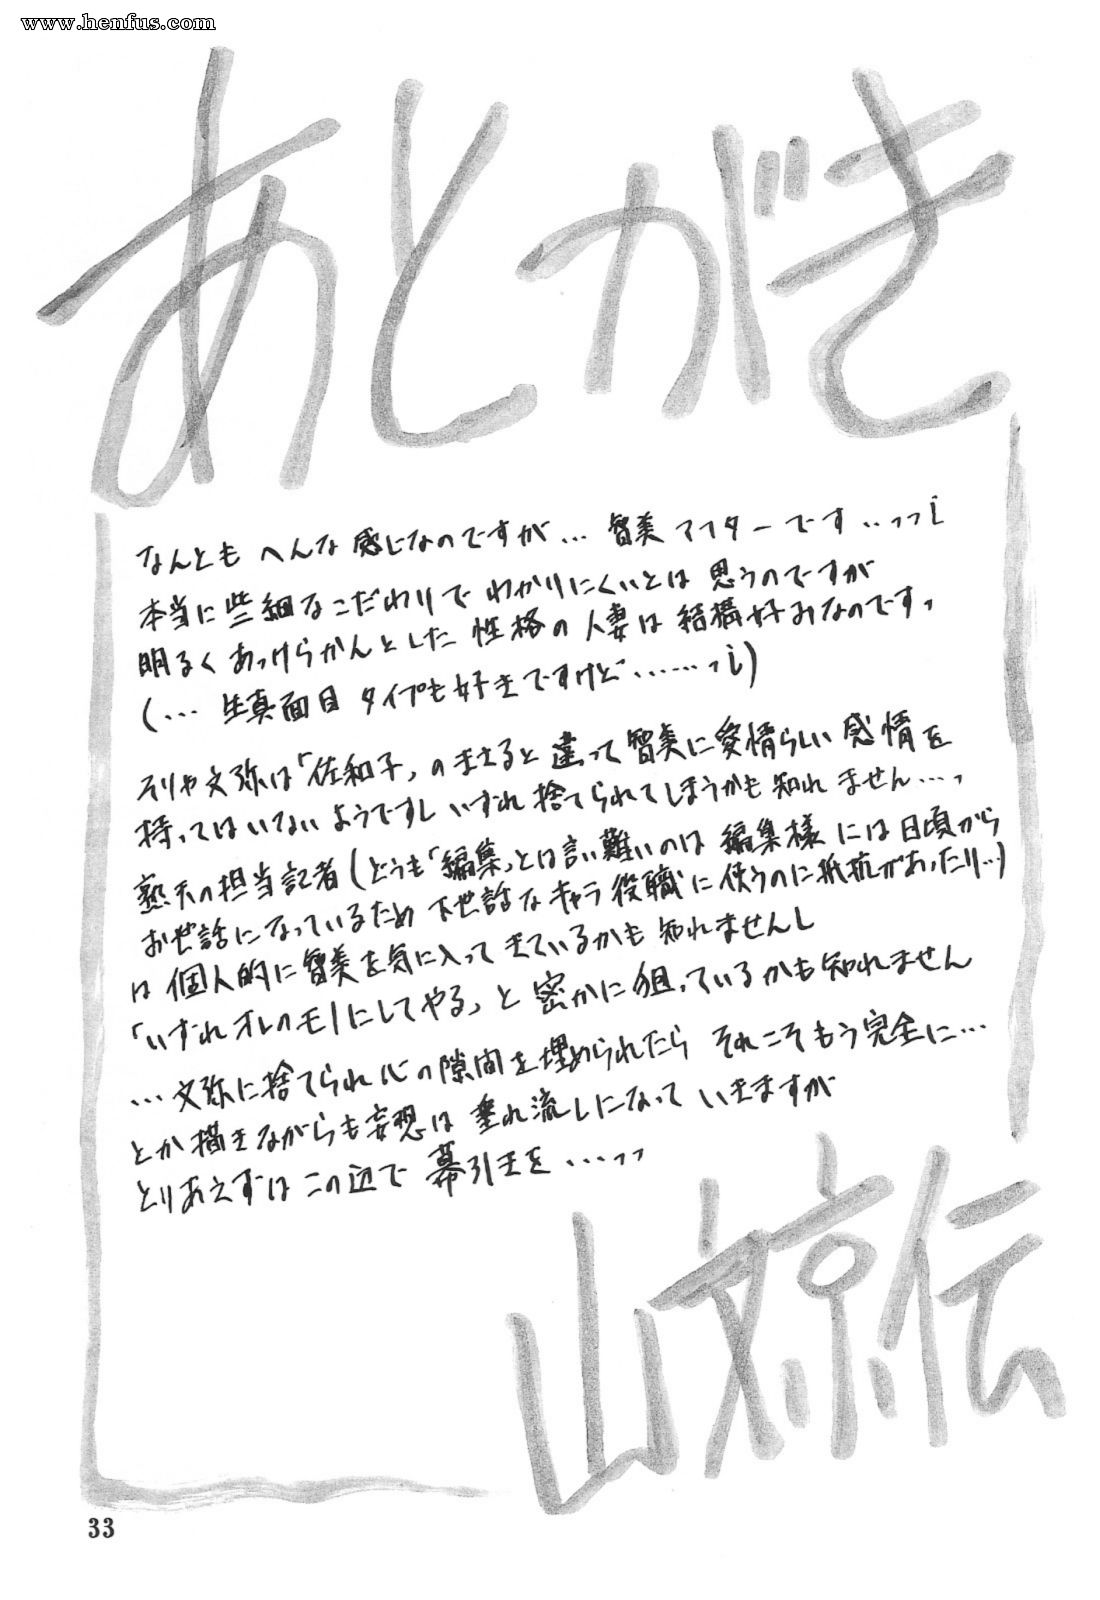 www.henfus.com
あとがき
なんとも へんな 感じなのですが… 智美アフターです…っっi
本当に些細なこだわりで わかりにくいとは 思うのですが
明るく あっけらかんとした 性格の 人妻は 結構好みなのです、
(… 生真面目 タイプも好きですけど……っi)
そりゃ文弥は「佐和子」のまさると違って智美に愛情らしい感情を
持ってはいないようですし いずれ捨てられてしまうかも知れません…、
熟天の担当記者(どうも「編集」とは言い難いのは 編集様には日頃から
お世話になっているため 下世話なキャラ役職に使うのに抵抗があったり…)
は 個人的に智美を気に入ってきているかも知れませんし
「いずれオレのモノにしてやる」と 密かに狙っているかも知れません
…文弥に捨てられ心の隙間を埋められたら それこそもう完全に…
とか描きながらも妄想は 垂れ流しになって いきますが
とりあえずは この辺で 幕引きを…っっ
山文京伝
33